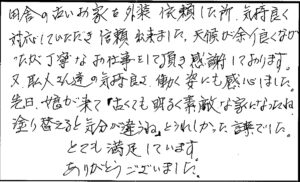 田舎の古いお家を外装依頼した所、気持良く
対応していただき依頼出来ました。天候が余り良くなか
ったが丁寧なお仕事をして頂き感謝しております。
又、職人さん達の気持良く働く姿にも感心しました。
先日、娘が来て「古くても明るく素敵な家になったね
塗り替えると気分が違うね」とうれしかった詳でした。
とても満足しています。
ありがとうございました。